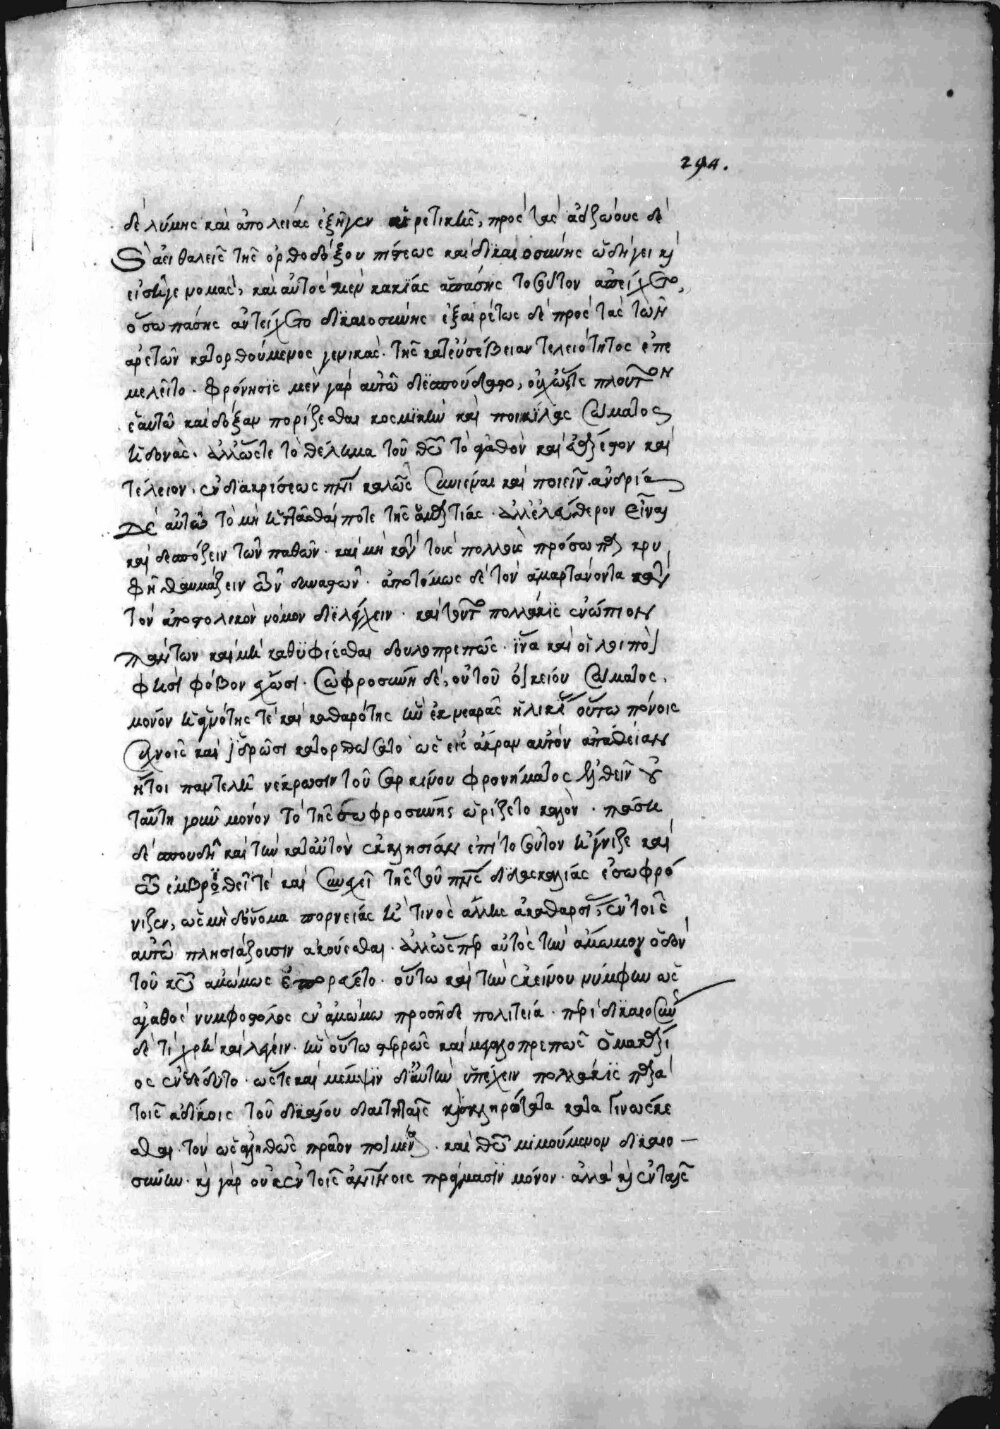 294.
δὲ λύμης καὶ ἀπολείας ἐξῆγεν αἱρετικῆς, πρὸς τὰς ἀϊζώους δὲ
καὶ ἀειθαλεῖς τῆς ὀρθοδόξου πίστεως καὶ δικαιοσύνης ὡδήγει καὶ
εἰσῆγε νομάς, καὶ αὐτὸς μὲν κακίας ἁπάσης τοσοῦτον ἀπείχετο,
ὅσω πάσης ἀντείχετο δικαιοσύνης ἐξαιρέτως δὲ πρὸς τὰς τῶν
ἀρετῶν κατορθούμενος γενικάς. τῆς κατ' εὐσέβειαν τελειότητος ἐπε
μελεῖτο. φρόνησις μὲν γὰρ αὐτῶ διεσπούδαστο, οὐχ ὥστε πλοῦτον
ἑαυτῶ καὶ δόξαν πορίζεσθαι κοσμικὴν καὶ ποικίλας σώματος
ἡδονάς. ἀλλ' ὥστε τὸ θέλημα τοῦ θεοῦ τὸ ἀγαθὸν καὶ εὐάρεστον καὶ
τέλειον, ἐν διακρίσεως πνεύματι καλῶς συνιέναι καὶ ποιεῖν. ἀνδρία
δὲ αὐτῶ τὸ μὴ ἡττᾶσθαί ποτε τῆς ἁμαρτίας. ἀλλ' ἐλεύθερον εἶναι
καὶ δεσπόζειν τῶν παθῶν. καὶ μὴ κατὰ τοὺς πολλοὺς πρόσωπα κρυ
φῆ θαυμάζειν τῶν δυναστῶν. ἀποτόμως δὲ τὸν ἁμαρτάνοντα κατὰ
τὸν ἀποστολικὸν νόμον διελέγχειν. καὶ τοῦτο πολλάκις ἐνώπιον
πάντων καὶ μὴ καθυφίεσθαι δουλοπρεπῶς. ἵνα καὶ οἱ λοιποὶ
φησὶ φόβον ἔχωσι. σωφροσύνη δὲ, οὐ τοῦ οἰκείου σώματος,
μόνον ἡ ἁγνότης τὲ καὶ καθαρότης ἣν ἐκ νεαρᾶς ἡλικίας οὕτω πόνοις
συχνοῖς καὶ ἱδρῶσι κατορθώσατο ὡς εἰς ἄκραν αὐτὸν ἀπάθειαν
ἤτοι παντελῆ νέκρωσιν τοῦ σαρκίνου φρονήματος ἐλθεῖν οὐ
ταύτη γοῦν μόνον τὸ τῆς σωφροσύνης ὡρίζετο καλὸν. πάση
δὲ σπουδῆ καὶ τὴν κατ' αὐτὸν ἐκκλησίαν ἐπὶ τοσοῦτον ἥγνιζε καὶ
τῶ ἐμβριθεῖ τὲ καὶ συνεχεῖ τῆς τοῦ πνεύματος διδασκαλίας ἐσωφρό
νιζεν, ὡς μὴ δ' ὄνομα πορνείας ἤ τινος ἄλλης ἀκαθαρσίας, ἐν τοῖς
αὐτῶ πλησιάζουσιν ἀκούεσθαι. ἀλλ' ὥσπερ αὐτὸς τὴν ἄμωμον ὁδὸν
τοῦ κυρίου ἀμώμως ἐπορεύετο. οὕτω καὶ τὴν ἐκείνου νύμφην ὡς
ἀγαθὸς νυμφοστόλος ἐν ἀμώμω προσῆδε πολιτεία. περὶ δικαιοσύνης
δὲ τί χρὴ καὶ λέγειν. ἣν οὕτω στερρῶς καὶ μεγαλοπρεπῶς ὁ μακάρι
ος ἐνεδέδυτο. ὥστε καὶ μέμψιν δι' αὐτὴν ὑπέχειν πολλάκις παρὰ
τοῖς ἀδίκοις τοῦ δικαίου διαιτηταῖς
σθαι. τὸν ὡς ἀληθῶς πρᾶον ποιμένα. καὶ θεοῦ μιμούμενον δικαιο
σύνην. καὶ γὰρ οὐκ ἐν τοῖς πράγμασιν μόνον. ἀλλὰ καὶ ἐν ταῖς